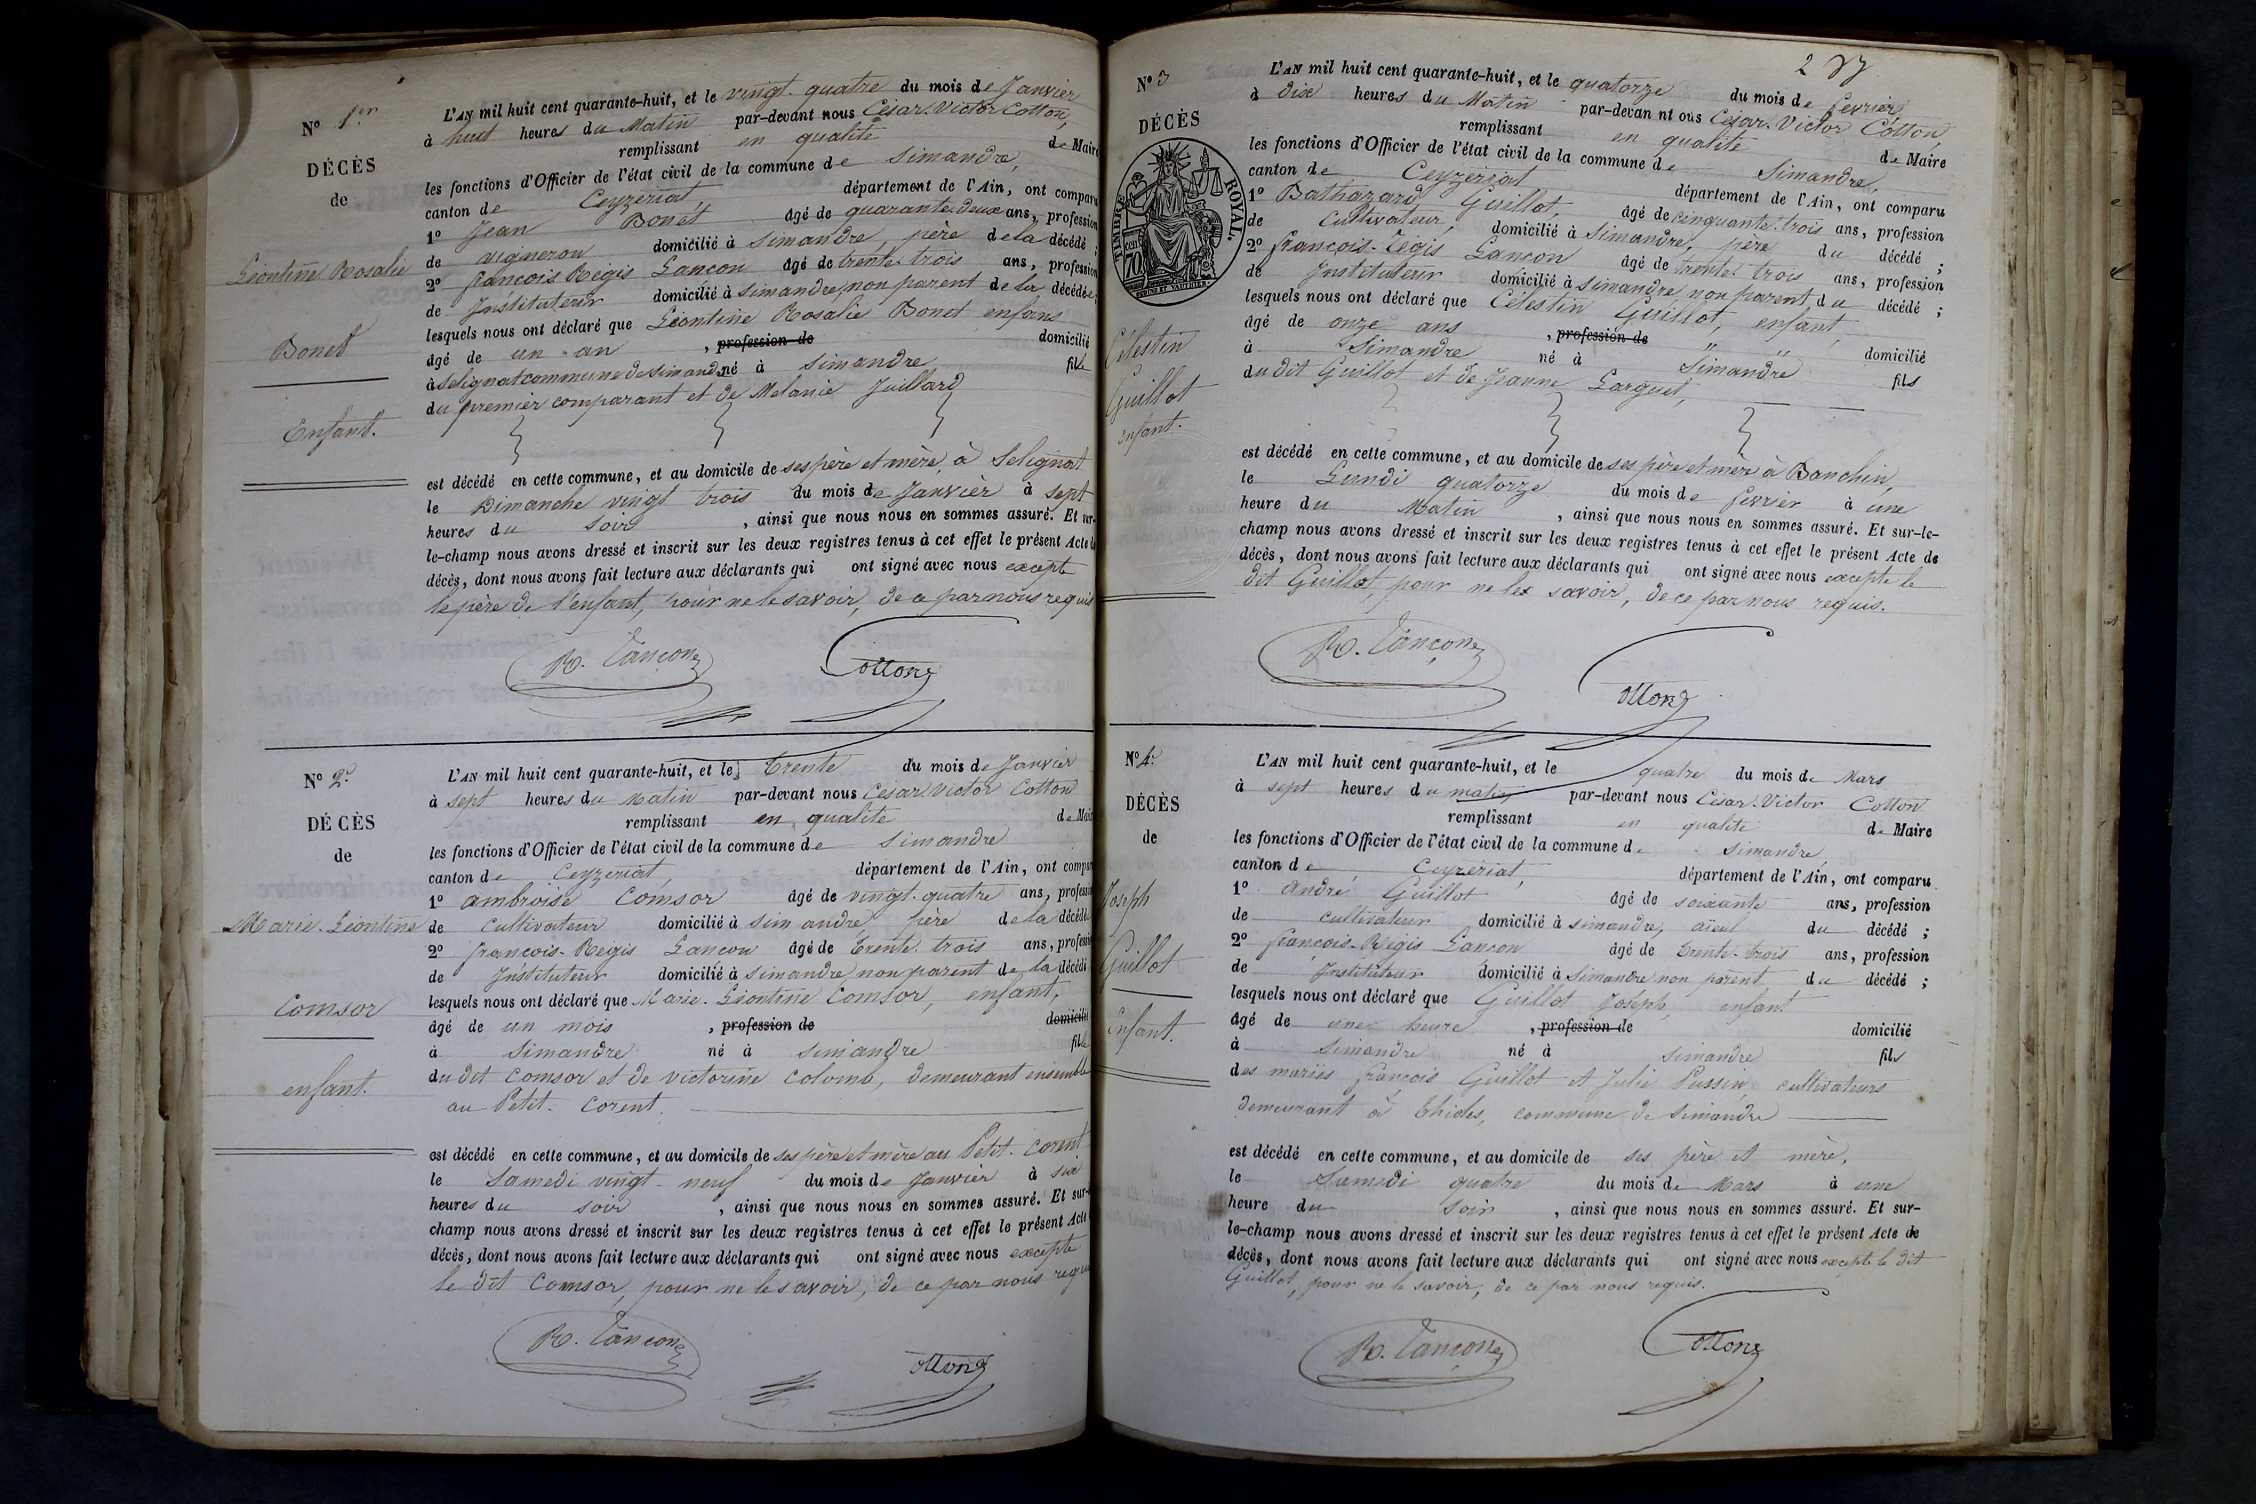 N° 1er
DÉCÈS
de
Léontine Rosalie
Bonet
Enfant.
L'AN mil huit cent quarante-huit, et le vingt-quatre du mois de Janvier
à huit heures du Matin par-devant nous César Victor Cotton,
remplissant en qualité de Maire
les fonctions d'Officier de l'état civil de la commune de Simandre,
canton de Ceyzériat département de l'Ain, ont comparu
1° Jean Bonet âgé de quarante-deux ans, profession
de vigneron domicilié à Simandre, père de la décédé ;
2° françois Régis Lançon âgé de trente-trois ans, profession
de Instituteur domicilié à Simandre, non parent de la décédée ;
lesquels nous ont déclaré que Léontine Rosalie Bonet enfans
âgé de un an , profession de domicilié
à Selignat commune de Simand. né à Simandre fille
du premier comparant et de Mélanie Juillard
est décédé en cette commune, et au domicile de ses père et mère, à Selignat
le Dimanche vingt trois du mois de Janvier à sept
heures du soir , ainsi que nous nous en sommes assuré. Et sur-
le-champ nous avons dressé et inscrit sur les deux registres tenus à cet effet le présent Acte de
décès, dont nous avons fait lecture aux déclarants qui ont signé avec nous excepté
le père de l'enfant, pour ne le savoir, de ce par nous requis
R. Lançon Cotton
N° 2.
DÉCÈS
de
Marie-Léontine
Comsor
enfant.
L'AN mil huit cent quarante-huit, et le trente du mois de Janvier
à sept heures du Matin par-devant nous César Victor Cotton
remplissant en qualité de Maire
les fonctions d'Officier de l'état civil de la commune de Simandre
canton de Ceyzeriat, département de l'Ain, ont comparu
1° ambroise Comsor âgé de vingt-quatre ans, profession
de Cultivateur domicilié à Simandre, père de la décédé
2° françois-Régis Lançon âgé de trente-trois ans, profession
de Instituteur domicilié à Simandre non parent de la décédé
lesquels nous ont déclaré que Marie-Léontine Comsor, enfant,
âgé de un mois , profession de domicilié
à Simandre né à Simandre fille
du dit Comsor et de victorine Colomb, demeurant ensemble
au Petit-Corent.
est décédé en cette commune, et au domicile de ses père et mère au Petit-Corent
le Samedi vingt-neuf du mois de Janvier à six
heures du soir , ainsi que nous nous en sommes assuré. Et sur-
champ nous avons dressé et inscrit sur les deux registres tenus à cet effet le présent Acte
décès, dont nous avons fait lecture aux déclarants qui ont signé avec nous excepté
le dit Comsor, pour ne le savoir, de ce par nous requis
R. Lançon Cotton
N° 3
DÉCÈS
TIMBRE ROYAL
70
Célestin
Guillot
enfant.
L'AN mil huit cent quarante-huit, et le quatorze du mois de fevrier,
à dix heures du Matin par-devan nt ous César-Victor Cotton,
remplissant en qualité de Maire
les fonctions d'Officier de l'état civil de la commune de Simandre,
canton de Ceyzériat département de l'Ain, ont comparu
1° Bathazard Guillot, âgé de cinquante-trois ans, profession
de Cultivateur, domicilié à Simandre, père du décédé ;
2° françois-Régis Lançon âgé de trente-trois ans, profession
de Instituteur domicilié à Simandre, non parent du décédé ;
lesquels nous ont déclaré que Célestin Guillot, enfant,
âgé de onze ans , profession de " " domicilié
à Simandre né à Simandre fils
du dit Guillot et de Jeanne Larguet,
est décédé en cette commune, et au domicile de ses père et mère à Banchin,
le Lundi quatorze du mois de fevrier à une
heure du Matin , ainsi que nous nous en sommes assuré. Et sur-le-
champ nous avons dressé et inscrit sur les deux registres tenus à cet effet le présent Acte de
décès, dont nous avons fait lecture aux déclarants qui ont signé avec nous excepté le
dit Guillot, pour ne les savoir, de ce par nous requis.
R. Lançon Cotton
N° 4.
DÉCÈS
de
Joseph
Guillot
Enfant.
L'AN mil huit cent quarante-huit, et le quatre du mois de Mars
à sept heures du matin par-devant nous César-Victor Cotton
remplissant en qualité de Maire
les fonctions d'Officier de l'état civil de la commune de Simandre
canton de Ceyzériat, département de l'Ain, ont comparu
1° André Guillot âgé de soixante ans, profession
de cultivateur domicilié à Simandre, aïeul du décédé ;
2° françois-Régis Lançon âgé de trente-trois ans, profession
de Instituteur domicilié à Simandre non parent du décédé ;
lesquels nous ont déclaré que Guillot Joseph, enfant
âgé de une heure , profession de domicilié
à Simandre né à Simandre fils
des mariés françois Guillot et Julie Pussin, cultivateurs
demeurant à Thioles, commune de Simandre
est décédé en cette commune, et au domicile de ses père et mère,
le Samedi quatre du mois de Mars à une
heure du Soir , ainsi que nous nous en sommes assuré. Et sur-
le-champ nous avons dressé et inscrit sur les deux registres tenus à cet effet le présent Acte de
décès, dont nous avons fait lecture aux déclarants qui ont signé avec nous excepté le dit
Guillot, pour ne le savoir, de ce par nous requis.
R. Lançon Cotton